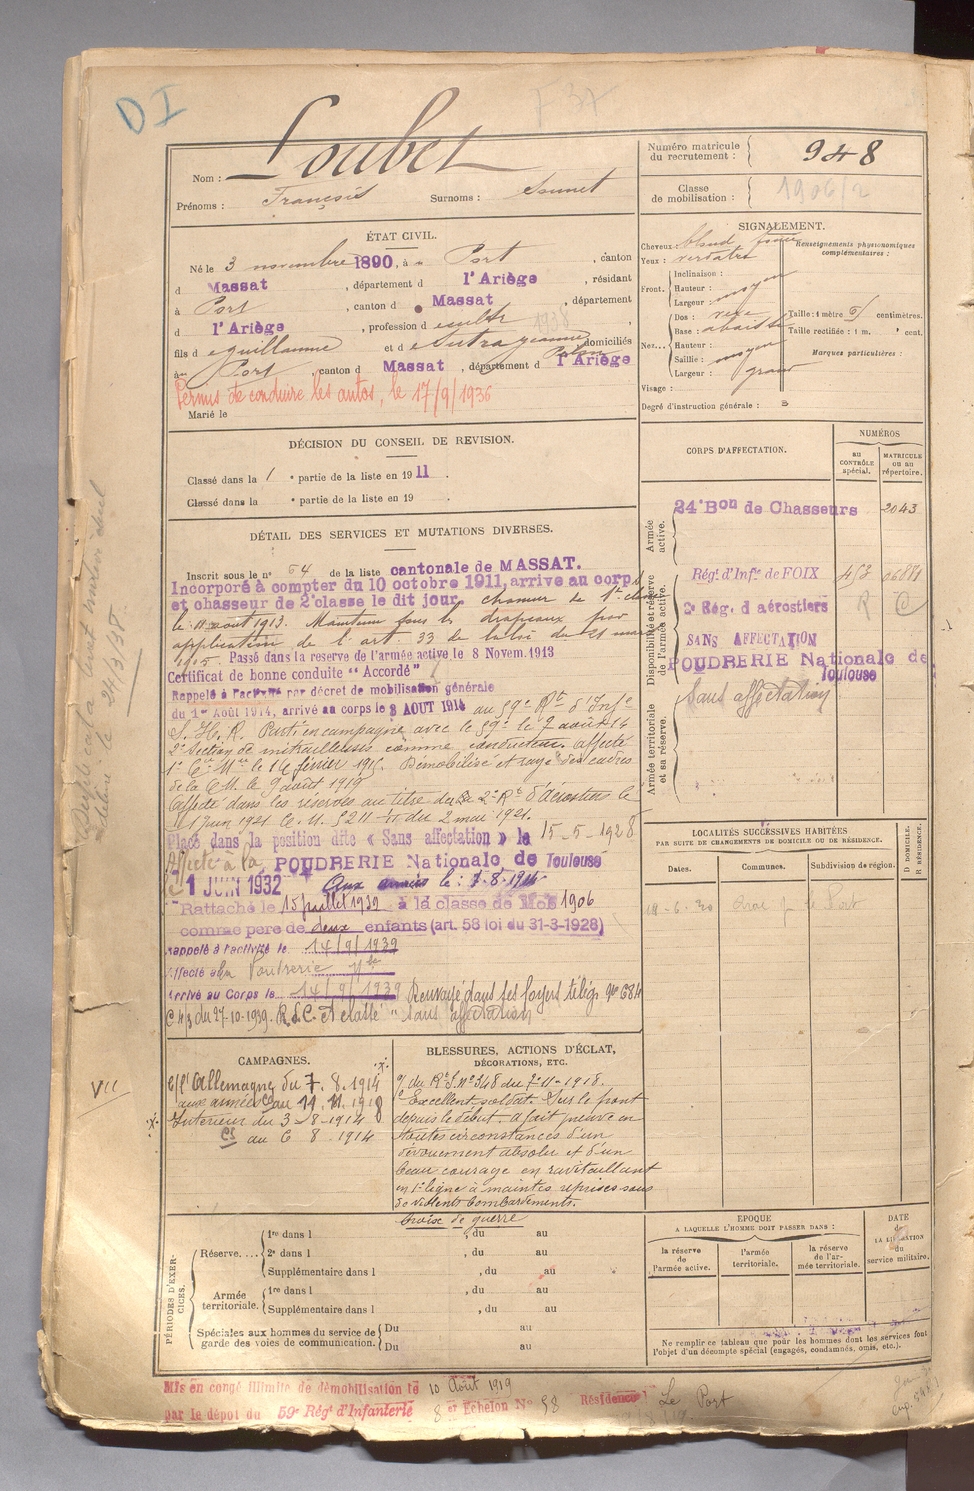 DI
Numéro matricule du recrutement : 948
Nom : Loubet
Prénoms : François Surnoms :
Classe de mobilisation : 1906/2
ÉTAT CIVIL.
Né le 3 novembre 1890, à Port, canton
d Massat, département d l'Ariège, résidant
à Port, canton d Massat, département
d l'Ariège, profession d
fils d e Guillaume et d domiciliés
à Port, canton d Massat, département d l'Ariège
Permis de conduire les autos, le 17/9/1936
Marié le
SIGNALEMENT.
Cheveux : blond foncé
Yeux : verdâtre
Front.
Inclinaison :
Hauteur : moyen
Largeur :
Nez.
Dos :
Base : abaissée
Hauteur :
Saillie : moyen
Largeur :
Visage : grand
Degré d'instruction générale : 3
Renseignements physionomiques complémentaires :
Taille : 1 mètre 61 centimètres.
Taille rectifiée : 1 m. cent.
Marques particulières :
DÉCISION DU CONSEIL DE REVISION.
Classé dans la 1e partie de la liste en 1911.
Classé dans la e partie de la liste en 19 .
DÉTAIL DES SERVICES ET MUTATIONS DIVERSES.
Inscrit sous le n° 64 de la liste cantonale de MASSAT.
Incorporé à compter du 10 octobre 1911, arrive au corps
et chasseur de 2e classe le dit jour. chasseur de 1e classe
le 11 août 1913. Maintenu sous les drapeaux par
application de l'art. 33 de la loi du 21 mars
1905. Passé dans la reserve de l'armée active le 8 Novem. 1913
Certificat de bonne conduite "Accordé"
Rappelé à l'activité par décret de mobilisation générale
du 1er Août 1914, arrivé au corps le 3 AOUT 1914 au 59e Rt d'Infie
S. H. R. Parti en campagne avec le 59e le 7 août 14
2e Section de mitrailleuses comme conducteur. affecté
1e Cie Mses le 14 février 1916. Démobilisé et rayé des cadres
de la C.M. le 9 août 1919
Affecté dans les réserves au titre du 2e Rt d'Aérostiers le
1 Juin 1921. C.M. 5211 du 2 mai 1921.
Placé dans la position dite « Sans affectation » le 15-5-1928
Affecté à la POUDRERIE Nationale de Toulouse
1 JUIN 1932 Aux armées le : 7-8-1914
Rattaché le 15 juillet 1932 à la classe de Mob 1906
comme père de deux enfants (art. 58 loi du 31-3-1928)
rappelé à l'activité le 14/9/1939
affecté à la Poudrerie Nle
arrivé au Corps le 14/9/1939 Renvoyé dans ses foyers télég. n°
du 27-10-1939. R.S.C. Et classé "Sans affectation"
CORPS D'AFFECTATION.
NUMÉROS
au contrôle spécial.
matricule ou au répertoire.
Armée active.
24e Bon de Chasseurs 2043
Disponibilité et réserve de l'armée active.
Régt d'Infie de FOIX 453
2e Rég. d aérostiers R C
SANS AFFECTATION
POUDRERIE Nationale de Toulouse
Armée territoriale et sa réserve.
Sans affectation
LOCALITÉS SUCCESSIVES HABITÉES
PAR SUITE DE CHANGEMENTS DE DOMICILE OU DE RÉSIDENCE.
Dates. Communes. Subdivision de région. D DOMICILE. R RÉSIDENCE.
le Port
CAMPAGNES.
C/ l'Allemagne du 7. 8. 1914
aux armées au 11. 11. 1918
Intérieur du 3-8-1914
CS au 6 8. 1914
BLESSURES, ACTIONS D'ÉCLAT,
DÉCORATIONS, ETC.
O/ du Rt I. N° 348 du 7-11-1918.
Excellent soldat. Sur le front
depuis le début. a fait preuve en
toutes circonstances d'un
dévouement absolu et d'un
beau courage en ravitaillant
en 1e ligne à maintes reprises sous
de violents bombardements.
Croix de guerre
PÉRIODES D'EXERCICES.
Réserve....
1re dans l , du au
2e dans l , du au
Supplémentaire dans l , du au
Armée territoriale.
1re dans l , du au
Supplémentaire dans l , du au
Spéciales aux hommes du service de garde des voies de communication.
Du au
Du au
ÉPOQUE
A LAQUELLE L'HOMME DOIT PASSER DANS :
la réserve de l'armée active.
l'armée territoriale.
la réserve de l'armée territoriale.
DATE de LA LIBÉRATION du service militaire.
Ne remplir ce tableau que pour les hommes dont les services font
l'objet d'un décompte spécial (engagés, condamnés, omis, etc.).
Mis en congé illimité de démobilisation le 10 Août 1919
par le dépôt du 59e Régt d'Infanterie 8 er Echelon N° 58 Résidence : Le Port
VII